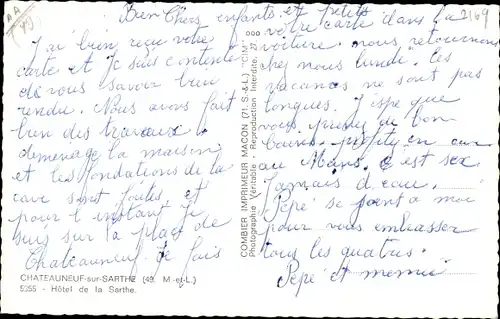 AA
49
2169
Bien Chers enfants et petits
J'ai bien reçu votre
carte et je suis contente
de vous savoir bien
rendu. Nous avons fait
bien des travaux
demenager la maison
et les fondations de la
cave sont faites, et
pour l'instant je
suis sur la place de
Chateauneuf je fais
CHATEAUNEUF-sur-SARTHE (49. M.-et-L.)
5355 - Hôtel de la Sarthe.
COMBIER IMPRIMEUR MACON (71. S.-&-L.) "CIM"
Photographie Véritable - Reproduction Interdite.
votre carte dans la
voiture. nous retournons
chez nous lundi. les
vacances ne sont pas
longues. J'espe que
vous prenez de bon
bains. profitez en car
au Mans. c'est sex
Jamais d'eau.
Pépé se joint a moi
pour vous embrasser
tous les quatres.
Pépé et mémé